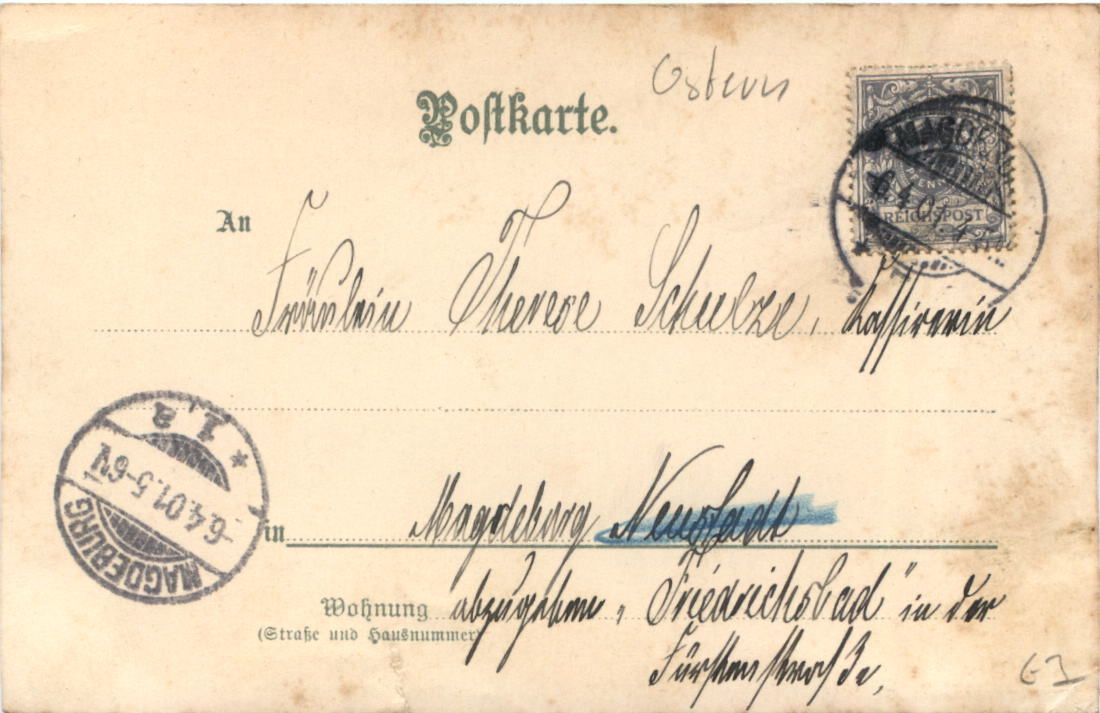 Ostern
Postkarte.
MAGDEBURG
6.4.0
REICHSPOST
An
Fräulein Therese Schulze, Kassirerin
MAGDEBURG
-6.4.01.5-6V
* 1, a
in Magdeburg Neustadt
Wohnung abzugeben „Friedrichsbad" in der
(Straße und Hausnummer)
Fürstenstraße,